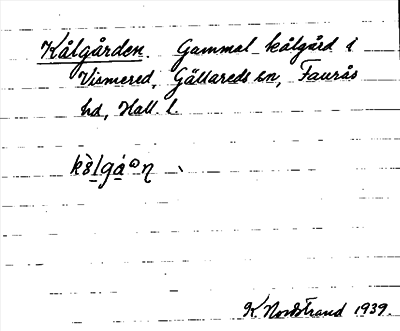 Kålgården. Gammal kålgård i
Vismered, Gällareds sn, Faurås
hd, Hall. l.
K. Nordstrand 1939.